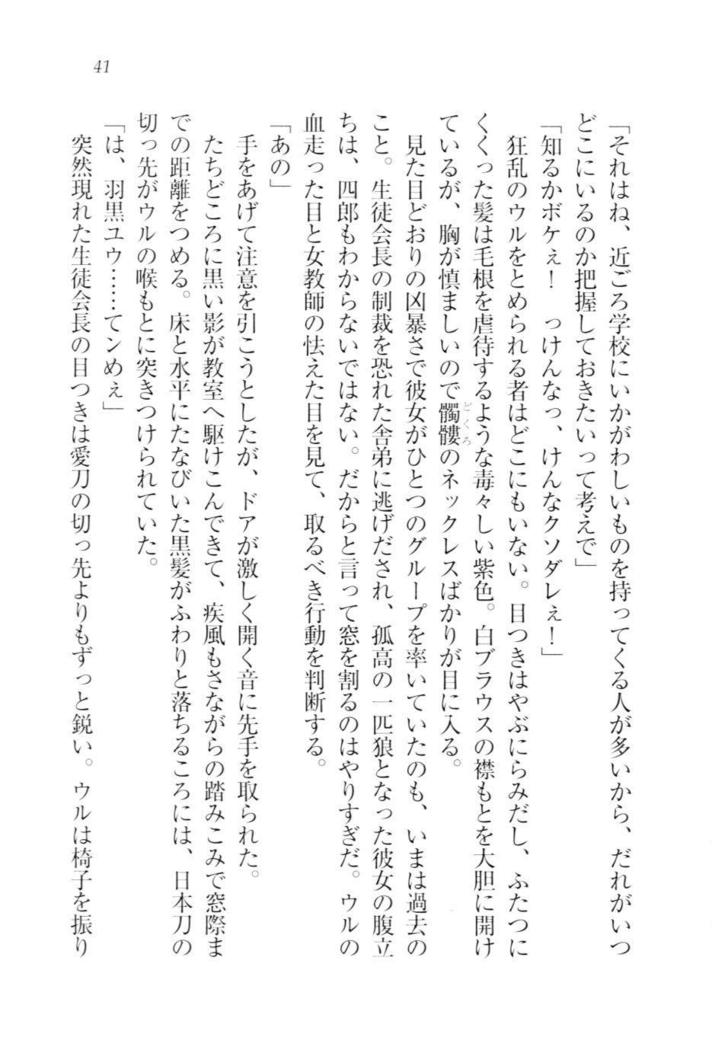 41
「それはね、近ごろ学校にいかがわしいものを持ってくる人が多いから、だれがいつ
どこにいるのか把握しておきたいって考えで」
「知るかボケぇ！　っけんなっ、けんなクソダレぇ！」
　狂乱のウルをとめられる者はどこにもいない。目つきはやぶにらみだし、ふたつに
くくった髪は毛根を虐待するような毒々しい紫色。白ブラウスの襟もとを大胆に開け
ているが、胸が慎ましいので髑髏のネックレスばかりが目に入る。
どくろ
　見た目どおりの凶暴さで彼女がひとつのグループを率いていたのも、いまは過去の
こと。生徒会長の制裁を恐れた舎弟に逃げだされ、孤高の一匹狼となった彼女の腹立
ちは、四郎もわからないではない。だからと言って窓を割るのはやりすぎだ。ウルの
血走った目と女教師の怯えた目を見て、取るべき行動を判断する。
「あの」
　手をあげて注意を引こうとしたが、ドアが激しく開く音に先手を取られた。
　たちどころに黒い影が教室へ駆けこんできて、疾風もさながらの踏みこみで窓際ま
での距離をつめる。床と水平にたなびいた黒髪がふわりと落ちるころには、日本刀の
切っ先がウルの喉もとに突きつけられていた。
「は、羽黒ユウ……てンめぇ」
　突然現れた生徒会長の目つきは愛刀の切っ先よりもずっと鋭い。ウルは椅子を振り